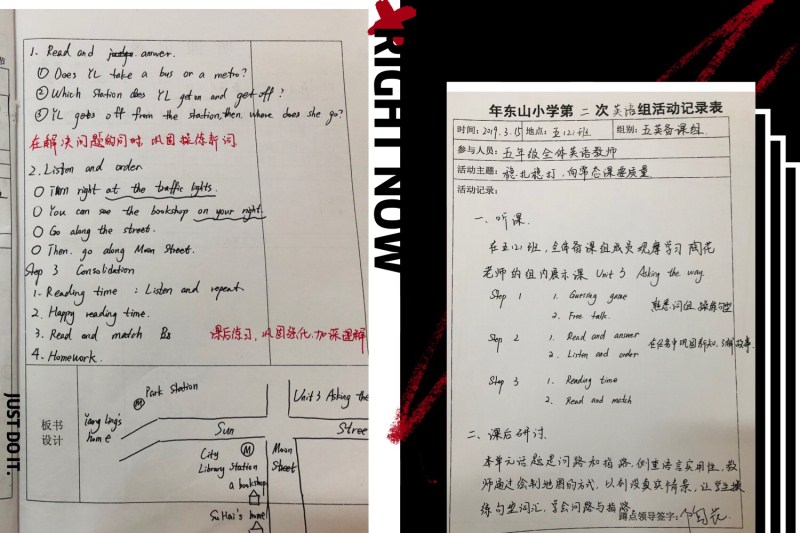 1. Read and answer.
① Does YL take a bus or a metro?
② Which station does YL get on and get off?
③ YL gets off from the station, then where does she go?
在解决问题的同时巩固操练新词
2. Listen and order
○ Turn right at the traffic lights.
○ You can see the bookshop on your right.
○ Go along the street.
○ Then. go along Moon Street.
Step 3 Consolidation
1. Reading time : Listen and repeat
2. Happy reading time.
3. Read and match
课后练习，巩固强化，加深理解
4. Homework.
板书
设计
Yang Ling's
home
Park Station
M
Sun
Stree
Unit 3 Asking the
City
Library Station
M
Moon
Street
a bookshop
Su Hai's home
JUST DO IT.
RIGHT NOW
年东山小学第二次英语组活动记录表
时间：2019.3.15 地点：五(2)班 组别：五英备课组
参与人员：五年级全体英语教师
活动主题：稳扎稳打，向常态课要质量
活动记录：
一、听课
在五(2)班，全体备课组成员观摩学习
老师的组内展示课 Unit 3 Asking the way.
Step 1 1. Guessing game
2. Free talk.
熟悉词组，操练句型
Step 2 1. Read and answer
2. Listen and order
在任务中巩固新知，了解故事.
Step 3 1. Reading time
2. Read and match
二、课后研讨
本单元话题是问路和指路，侧重语言实用性，教
师通过绘制地图的方式，以创设真实情景，让学生操
练句型词汇，学会问路与指路
蹲点领导签字：